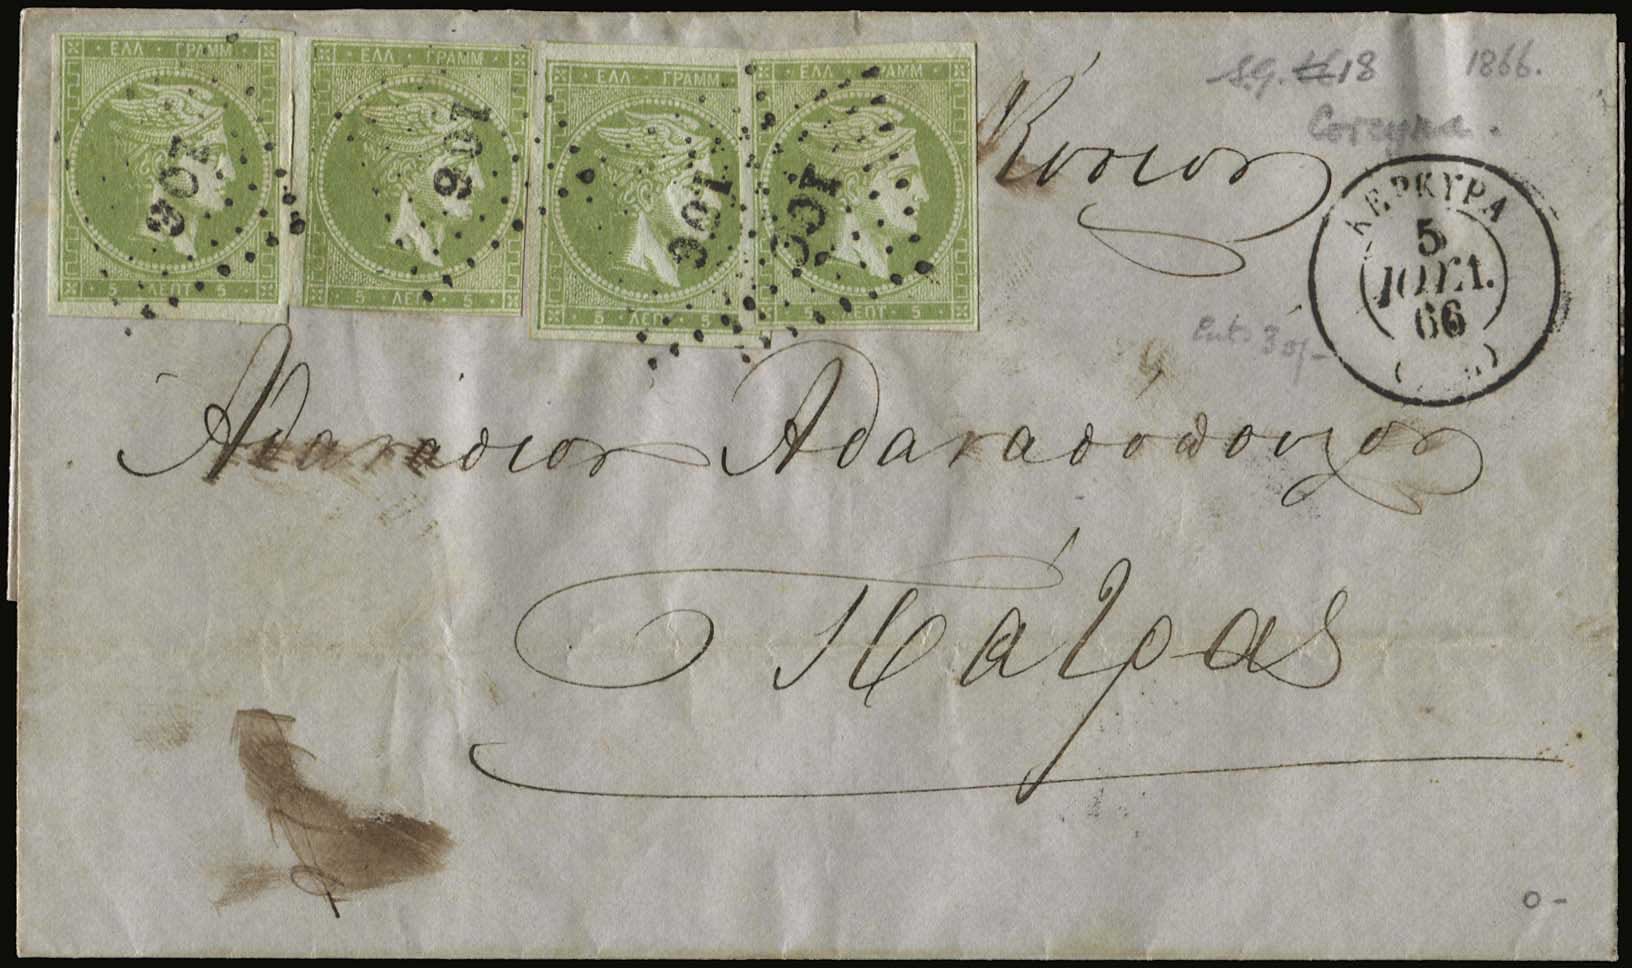 ΕΛΛ ΓΡΑΜΜ
5 ΛΕΠΤ 5
106
ΕΛΛ ΓΡΑΜΜ
5 ΛΕΠ 5
106
ΕΛΛ ΓΡΑΜΜ
5 ΛΕΠΤ 5
106
ΕΛΛ ΓΡΑΜΜ
ΛΕΠΤ 5
106
S.G. 18 1866.
Corcyra.
Κύριον
ΚΕΡΚΥΡΑ
5
ΙΟΥΛ.
66
Αθανάσιον Αθανασόπουλον
Πάτρας
0-